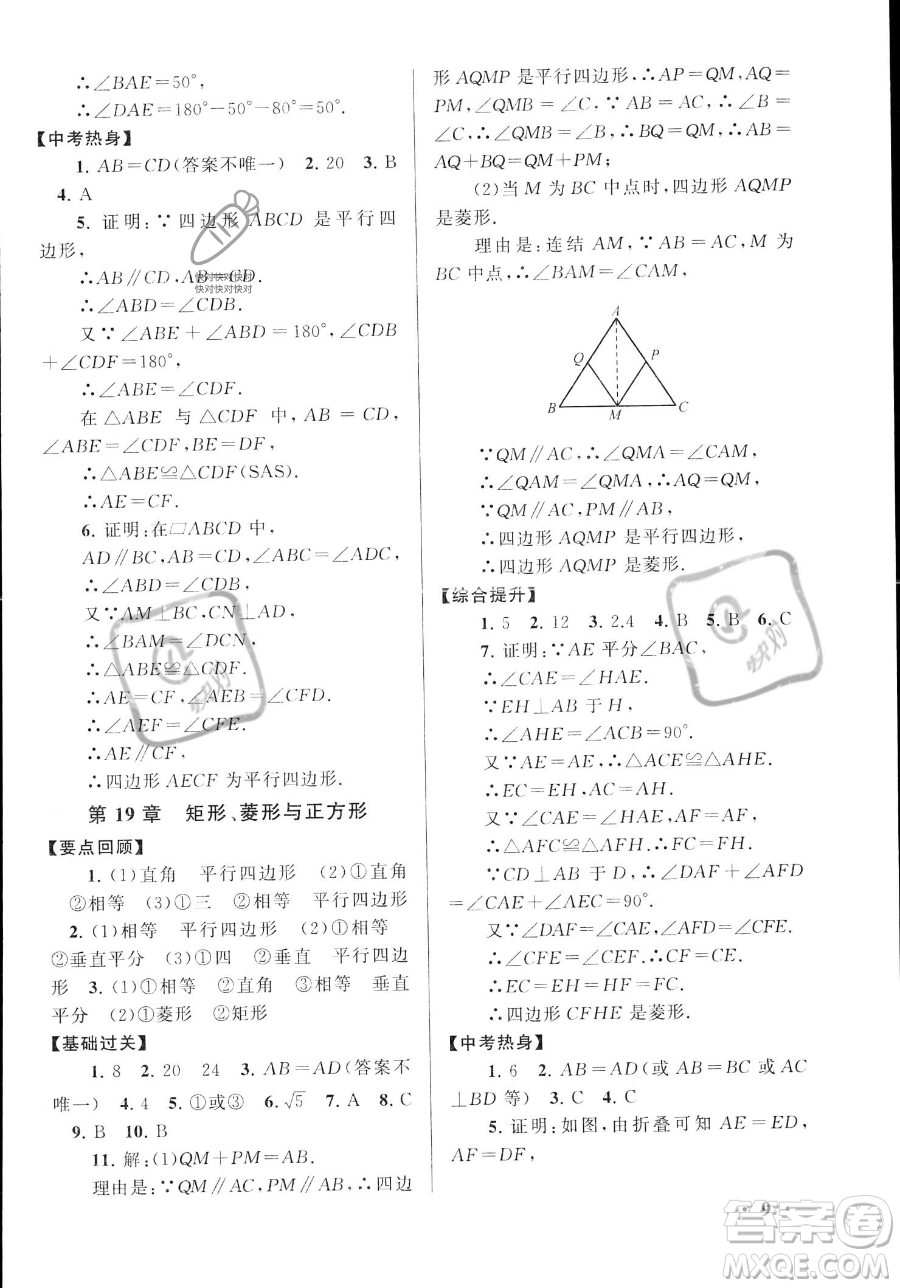 ∴∠BAE=50°,
∴∠DAE=180°-50°-80°=50°.
【中考热身】
1. AB=CD(答案不唯一) 2. 20 3. B
4. A
5. 证明:∵四边形 ABCD 是平行四
边形,
∴AB∥CD,AB=CD.
快对快对快对
快对快对快对
∴∠ABD=∠CDB.
又∵∠ABE+∠ABD=180°,∠CDB
+∠CDF=180°,
∴∠ABE=∠CDF.
在△ABE 与△CDF 中,AB=CD,
∠ABE=∠CDF,BE=DF,
∴△ABE≌△CDF(SAS).
∴AE=CF.
6. 证明:在□ABCD 中,
AD∥BC,AB=CD,∠ABC=∠ADC,
∴∠ABD=∠CDB.
又∵AM⊥BC,CN⊥AD,
∴∠BAM=∠DCN,
∴AE=CF,∠AEB=∠CFD.
∴∠AEF=∠CFE.
∴AE∥CF.
∴四边形 AECF 为平行四边形.
第 19 章 矩形、菱形与正方形
【要点回顾】
1. (1)直角 平行四边形 (2)①直角
②相等 (3)①三 ②相等 平行四边形
2. (1)相等 平行四边形 (2)①相等
②垂直平分 (3)①四 ②垂直 平行四边
形 3. (1)①相等 ②直角 ③相等 垂直
平分 (2)①菱形 ②矩形
【基础过关】
1. 8 2. 20 24 3. AB=AD(答案不
唯一) 4. 4 5. ①或③ 6. √5 7. A 8. C
9. B 10. B
11. 解:(1)QM+PM=AB.
理由是:∵QM∥AC,PM∥AB,∴四边
形 AQMP 是平行四边形,∴AP=QM,AQ=
PM,∠QMB=∠C.∵AB=AC,∴∠B=
∠C,∴∠QMB=∠B,∴BQ=QM,∴AB=
AQ+BQ=QM+PM.
(2)当 M 为 BC 中点时,四边形 AQMP
是菱形.
理由是:连结 AM,∵AB=AC,M 为
BC 中点,∴∠BAM=∠CAM,
A
Q P
B M C
∵QM∥AC,∴∠QMA=∠CAM,
∴∠QAM=∠QMA,∴QA=QM,
∵QM∥AC,PM∥AB,
∴四边形 AQMP 是平行四边形,
∴四边形 AQMP 是菱形.
【综合提升】
1. 5 2. 12 3. 2.4 4. B 5. B 6. C
7. 证明:∵AE 平分∠BAC,
∴∠CAE=∠HAE.
∵EH⊥AB 于 H,
∴∠AHE=∠ACB=90°.
又∵AE=AE,∴△ACE≌△AHE.
∴EC=EH,AC=AH.
又∵∠CAE=∠HAE,AF=AF,
∴△AFC≌△AFH.∴FC=FH.
∵CD⊥AB 于 D,∴∠DAF+∠AFD
=∠CAE+∠AEC=90°.
又∵∠DAF=∠CAE,∠AFD=∠CFE.
∴∠CFE=∠CEF.∴CF=CE.
∴EC=EH=HF=FC.
∴四边形 CFHE 是菱形.
【中考热身】
1. 6 2. AB=AD(或 AB=BC 或 AC
⊥BD 等) 3. C 4. C
5. 证明:如图,由折叠可知 AE=ED,
AF=DF,
快对
快对
· 9 ·
答案卷
MXQE.COM